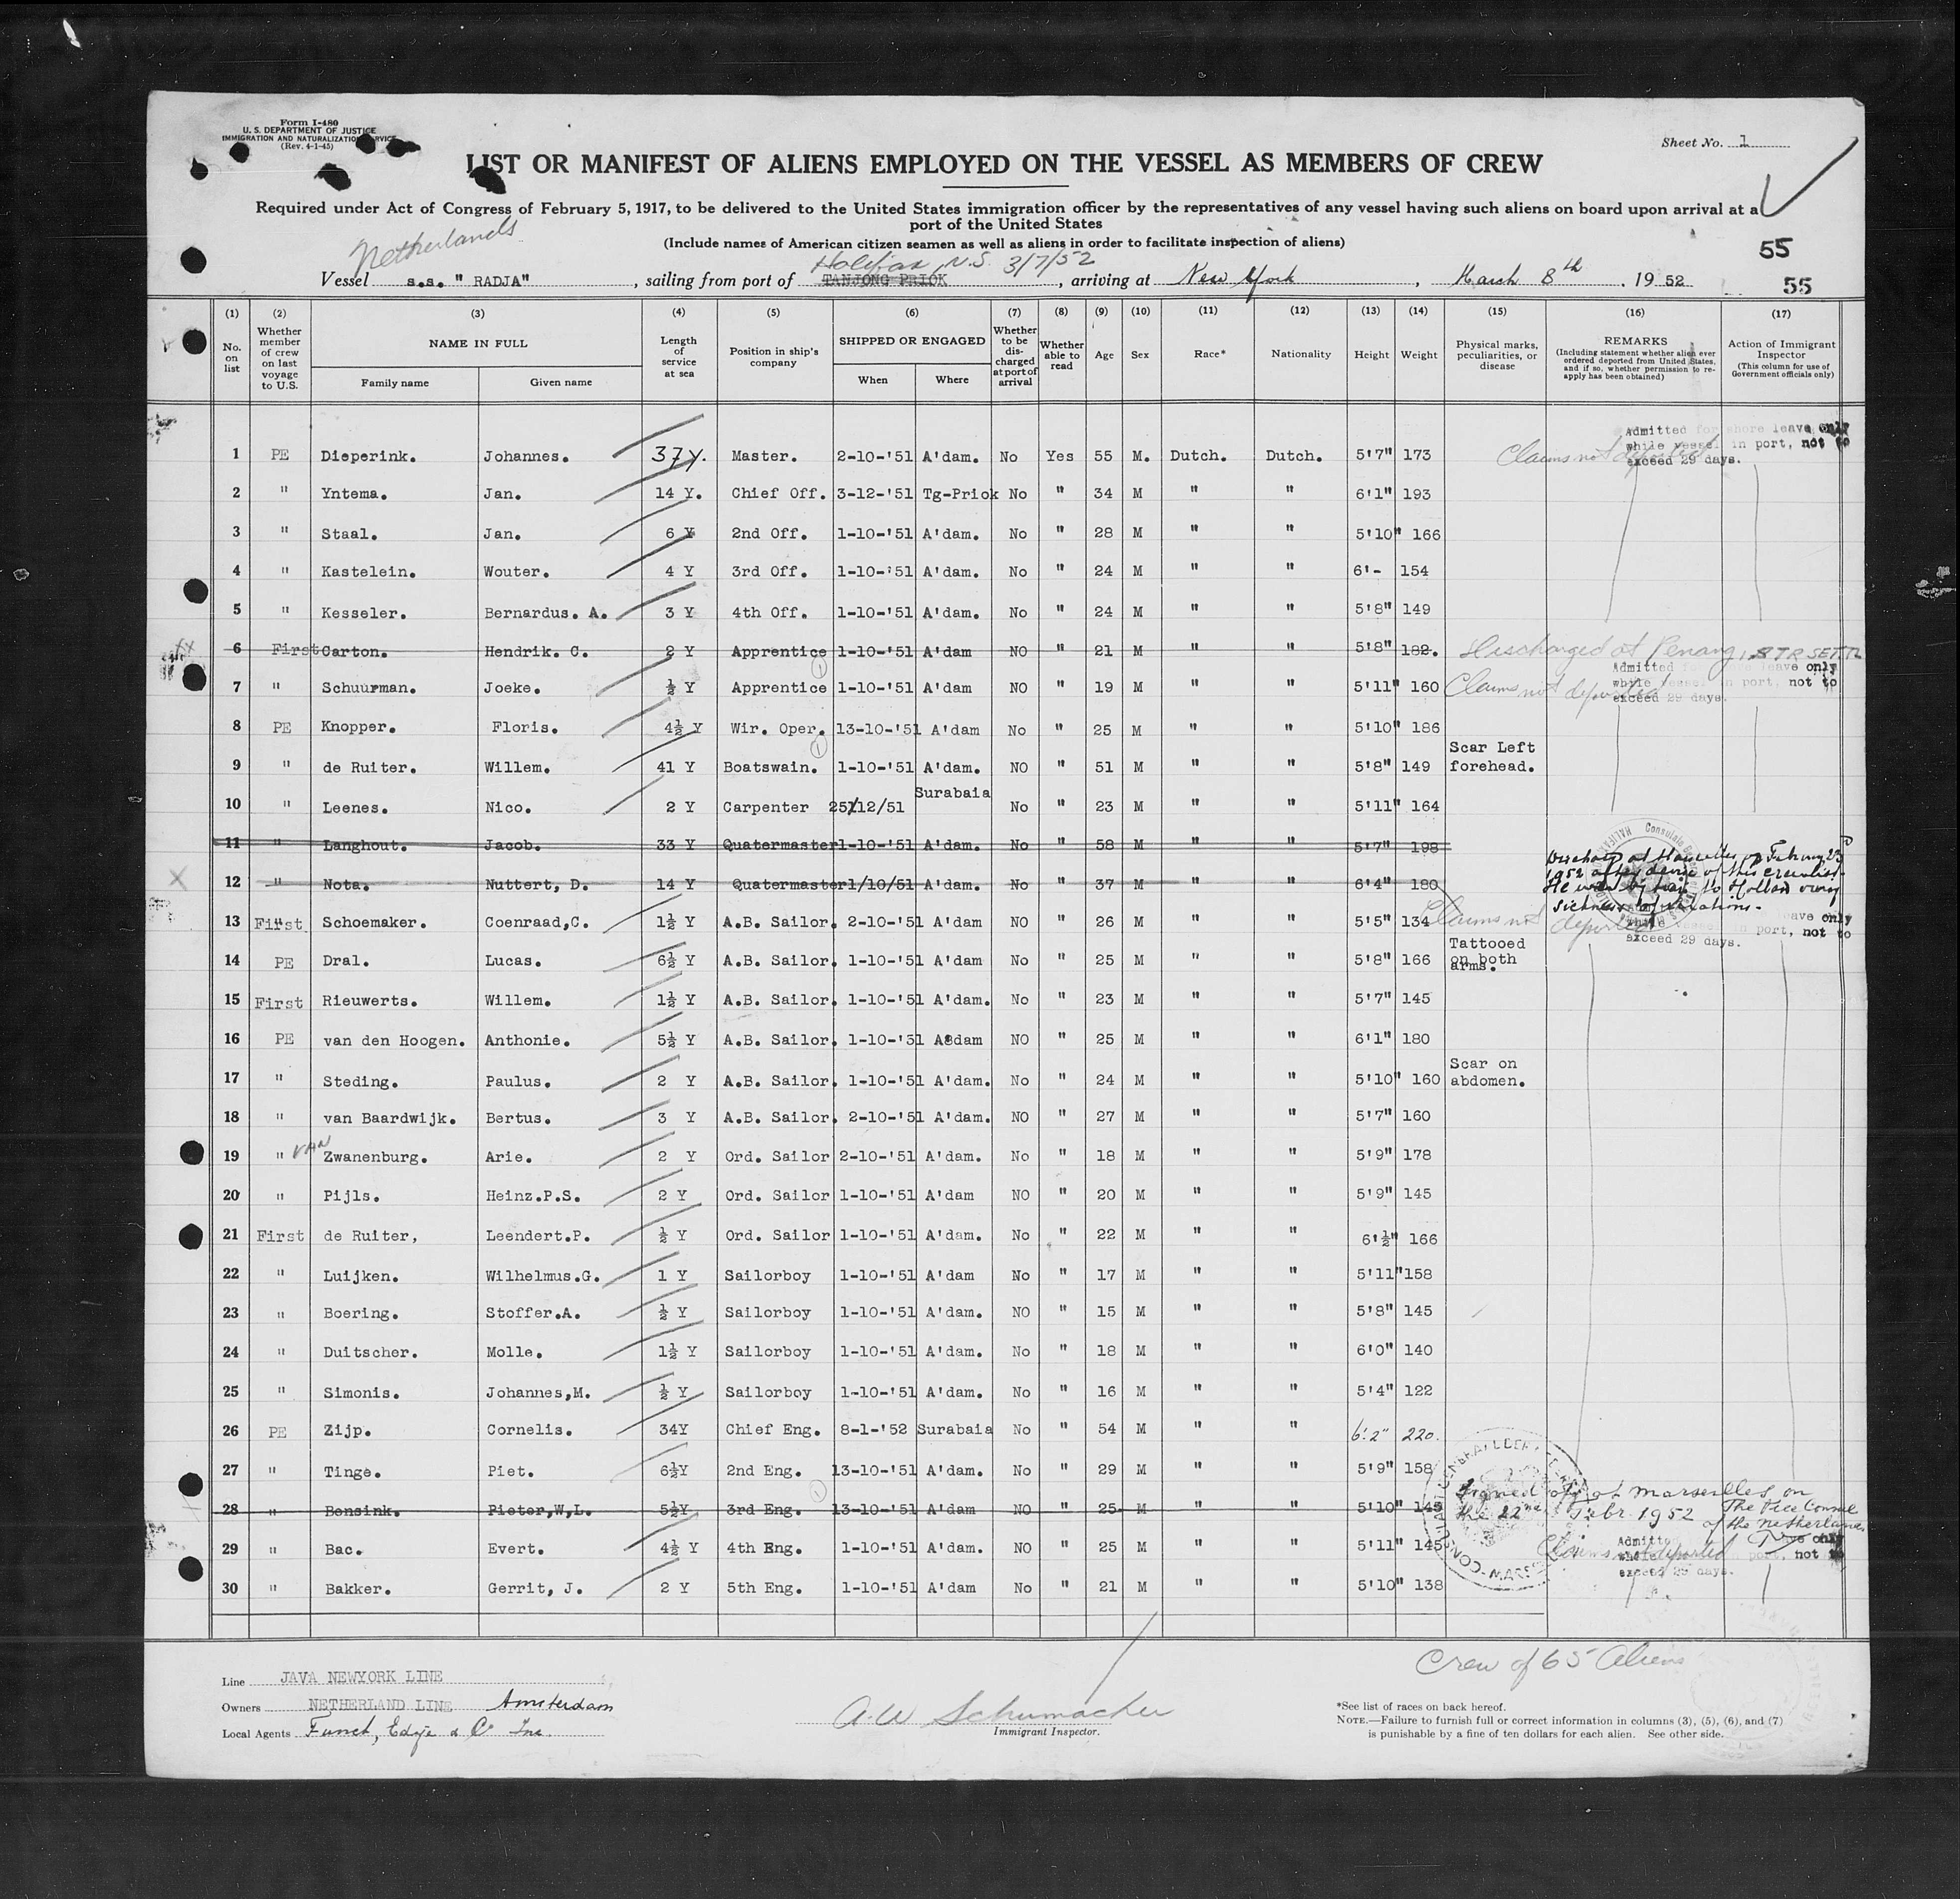 Form I-480
U. S. DEPARTMENT OF JUSTICE
IMMIGRATION AND NATURALIZATION SERVICE
(Rev. 4-1-45)
Sheet No. 1
LIST OR MANIFEST OF ALIENS EMPLOYED ON THE VESSEL AS MEMBERS OF CREW
Required under Act of Congress of February 5, 1917, to be delivered to the United States immigration officer by the representatives of any vessel having such aliens on board upon arrival at a
port of the United States
(Include names of American citizen seamen as well as aliens in order to facilitate inspection of aliens)
55
Netherlands
Halifax, N.S. 3/7/52
Vessel s.s. " RADJA" , sailing from port of TANJONG PRIOK , arriving at New York , March 8th , 19 52
55
(1) (2) (3) (4) (5) (6) (7) (8) (9) (10) (11) (12) (13) (14) (15) (16) (17)
No. on list
Whether member of crew on last voyage to U.S.
NAME IN FULL
Family name
Given name
Length of service at sea
Position in ship's company
SHIPPED OR ENGAGED
When
Where
Whether to be discharged at port of arrival
Whether able to read
Age
Sex
Race*
Nationality
Height
Weight
Physical marks, peculiarities, or disease
REMARKS
(Including statement whether alien ever ordered deported from United States, and if so, whether permission to re-apply has been obtained)
Action of Immigrant Inspector
(This column for use of Government officials only)
Admitted for shore leave only
while vessel in port, not to
exceed 29 days.
1 PE Dieperink. Johannes. 37y. Master. 2-10-'51 A'dam. No Yes 55 M. Dutch. Dutch. 5'7" 173 Claims not deported
2 " Yntema. Jan. 14 Y. Chief Off. 3-12-'51 Tg-Priok No " 34 M " " 6'1" 193
3 " Staal. Jan. 6 Y 2nd Off. 1-10-'51 A'dam. No " 28 M " " 5'10" 166
4 " Kastelein. Wouter. 4 Y 3rd Off. 1-10-'51 A'dam. No " 24 M " " 6'- 154
5 " Kesseler. Bernardus. A. 3 Y 4th Off. 1-10-'51 A'dam. No " 24 M " " 5'8" 149
6 First Carton. Hendrik. C. 2 Y Apprentice 1-10-'51 A'dam NO " 21 M " " 5'8" 182. Discharged at Penang, STR SETTL
Admitted for shore leave only
while vessel in port, not to
exceed 29 days.
7 " Schuurman. Joeke. ½ Y Apprentice 1-10-'51 A'dam NO " 19 M " " 5'11" 160 Claims not deported
8 PE Knopper. Floris. 4½ Y Wir. Oper. 13-10-'51 A'dam No " 25 M " " 5'10" 186
9 " de Ruiter. Willem. 41 Y Boatswain. 1-10-'51 A'dam. NO " 51 M " " 5'8" 149 Scar Left forehead.
10 " Leenes. Nico. 2 Y Carpenter 25/12/51 Surabaia No " 23 M " " 5'11" 164
11 " Langhout. Jacob. 33 Y Quatermaster 1-10-'51 A'dam. No " 58 M " " 5'7" 198
12 " Nota. Nuttert, D. 14 Y Quatermaster 1/10/51 A'dam. No " 37 M " " 6'4" 180
13 First Schoemaker. Coenraad,C. 1½ Y A.B. Sailor. 2-10-'51 A'dam. No " 26 M " " 5'5" 134 Claims not deported
leave only
in port, not to
exceed 29 days.
14 PE Dral. Lucas. 6½ Y A.B. Sailor. 1-10-'51 A'dam No " 25 M " " 5'8" 166 Tattooed on both arms.
15 First Rieuwerts. Willem. 1½ Y A.B. Sailor. 1-10-'51 A'dam. No " 23 M " " 5'7" 145
16 PE van den Hoogen. Anthonie. 5½ Y A.B. Sailor. 1-10-'31 A8dam NO " 25 M " " 6'1" 180
17 " Steding. Paulus. 2 Y A.B. Sailor. 1-10-'51 A'dam. No " 24 M " " 5'10" 160 Scar on abdomen.
18 " van Baardwijk. Bertus. 3 Y A.B. Sailor. 2-10-'51 A'dam. NO " 27 M " " 5'7" 160
19 " VAN Zwanenburg. Arie. 2 Y Ord. Sailor 2-10-'51 A'dam. No " 18 M " " 5'9" 178
20 " Pijls. Heinz.P.S. 2 Y Ord. Sailor 1-10-'51 A'dam NO " 20 M " " 5'9" 145
21 First de Ruiter, Leendert.P. ½ Y Ord. Sailor 1-10-'51 A'dam. No " 22 M " " 6'½" 166
22 " Luijken. Wilhelmus.G. 1 Y Sailorboy 1-10-'51 A'dam No " 17 M " " 5'11" 158
23 " Boering. Stoffer.A. ½ Y Sailorboy 1-10-'51 A'dam. NO " 15 M " " 5'8" 145
24 " Duitscher. Molle. 1½ Y Sailorboy 1-10-'51 A'dam. No " 18 M " " 6'0" 140
25 " Simonis. Johannes,M. ½ Y Sailorboy 1-10-'51 A'dam. No " 16 M " " 5'4" 122
26 PE Zijp. Cornelis. 34Y Chief Eng. 8-1-'52 Surabaia No " 54 M " " 6'2" 220.
27 " Tinge. Piet. 6½Y 2nd Eng. 13-10-'51 A'dam. No " 29 M " " 5'9" 158
28 " Bensink. Pieter,W,L. 5½Y 3rd Eng. 13-10-'51 A'dam NO " 25 M " " 5'10" 145 Signed off at Marseilles on
the 22nd Febr. 1952
The Vice Consul
of the Netherlands
29 " Bac. Evert. 4½ Y 4th Eng. 1-10-'51 A'dam. NO " 25 M " " 5'11" 145 Claims not deported
30 " Bakker. Gerrit, J. 2 Y 5th Eng. 1-10-'51 A'dam No " 21 M " " 5'10" 138
exceed 29 days.
Crew of 65 Aliens
Line JAVA NEWYORK LINE
Owners NETHERLAND LINE Amsterdam
Local Agents Funch, Edye & Co Inc.
A.W Schumacher
Immigrant Inspector.
*See list of races on back hereof.
NOTE.—Failure to furnish full or correct information in columns (3), (5), (6), and (7)
is punishable by a fine of ten dollars for each alien. See other side.